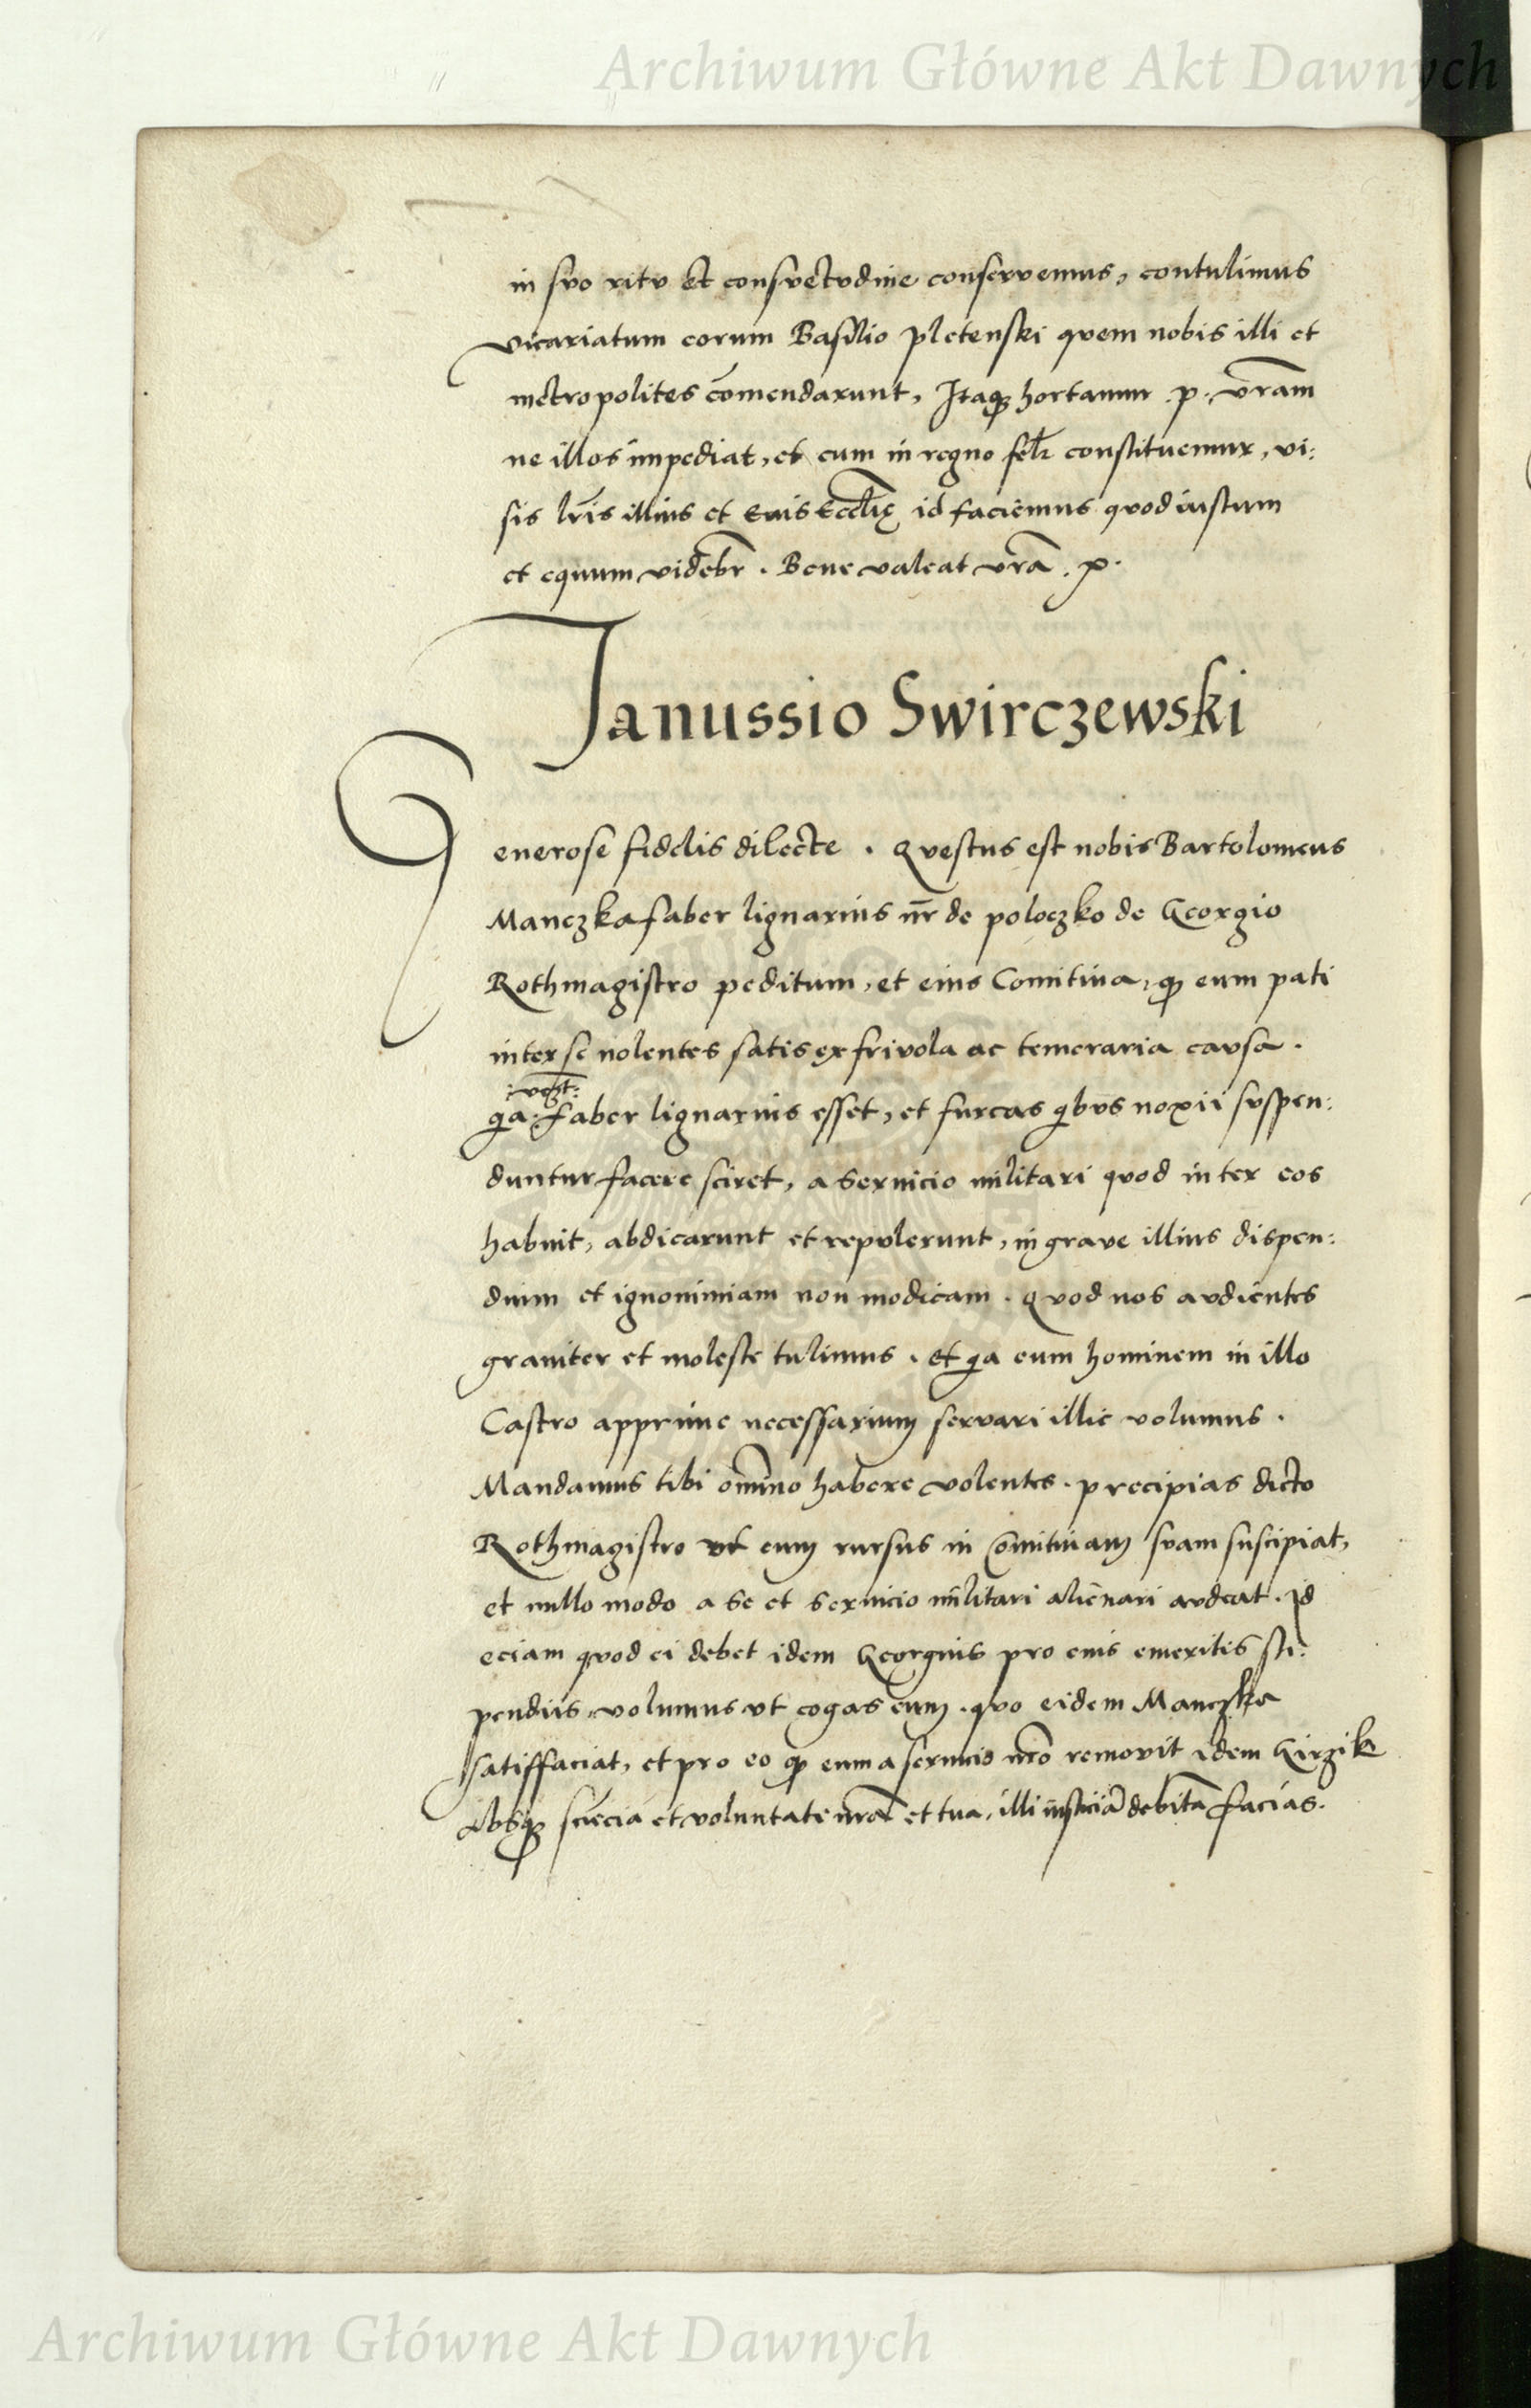 Archiwum Główne Akt Dawnych
in svo ritv et consvetvdine conservemus, contulimus
vicariatum eorum Basilio pletenski qvem nobis illi et
metropolites cōmendarunt, Itaqꝫ hortamur .p. vr̄am
ne illos impediat, et cum in regno constituemur, vi:
sis lr̄is illius et Eccl̄ię id faciemus qvod iustum
et equum videbr̄ . Bene valeat vr̄a . p.
Ianussio Swirczewski
Generose fidelis dilecte . Qvestus est nobis Bartolomeus
Manczka faber lignarius nr̄ de poloczko de Georgio
Rothmagistro peditum, et eius Comitiua, qꝫ eum pati
inter se nolentes satis ex frivola ac temeraria cavsa .
qa faber lignarius esset, et furcas qbvs noxii svspen:
duntur facere sciret, a servicio militari qvod inter eos
habuit, abdicarunt et repvlerunt, in grave illius dispen:
dium et ignonimiam non modicam . Qvod nos avdientes
graviter et moleste tulimus . et qa eum hominem in illo
Castro apprime necessarium servari illic volumus .
Mandamus tibi om̄ino habere volentes . precipias dicto
Rothmagistro vt eum rursus in Comitiuam svam suscipiat,
et nullo modo a se et servicio militari alienari avdeat . Id
eciam qvod ei debet idem Georgius pro eius emeritis sti:
pendiis, volumus vt cogas eum . qvo eidem Manczka
satisffaciat, et pro eo qꝫ eum a servicio nr̄o removit idem Girzik
absqꝫ sciēcia et voluntate nr̄a et tua, illi iusticiā debitā facias.
Archiwum Główne Akt Dawnych